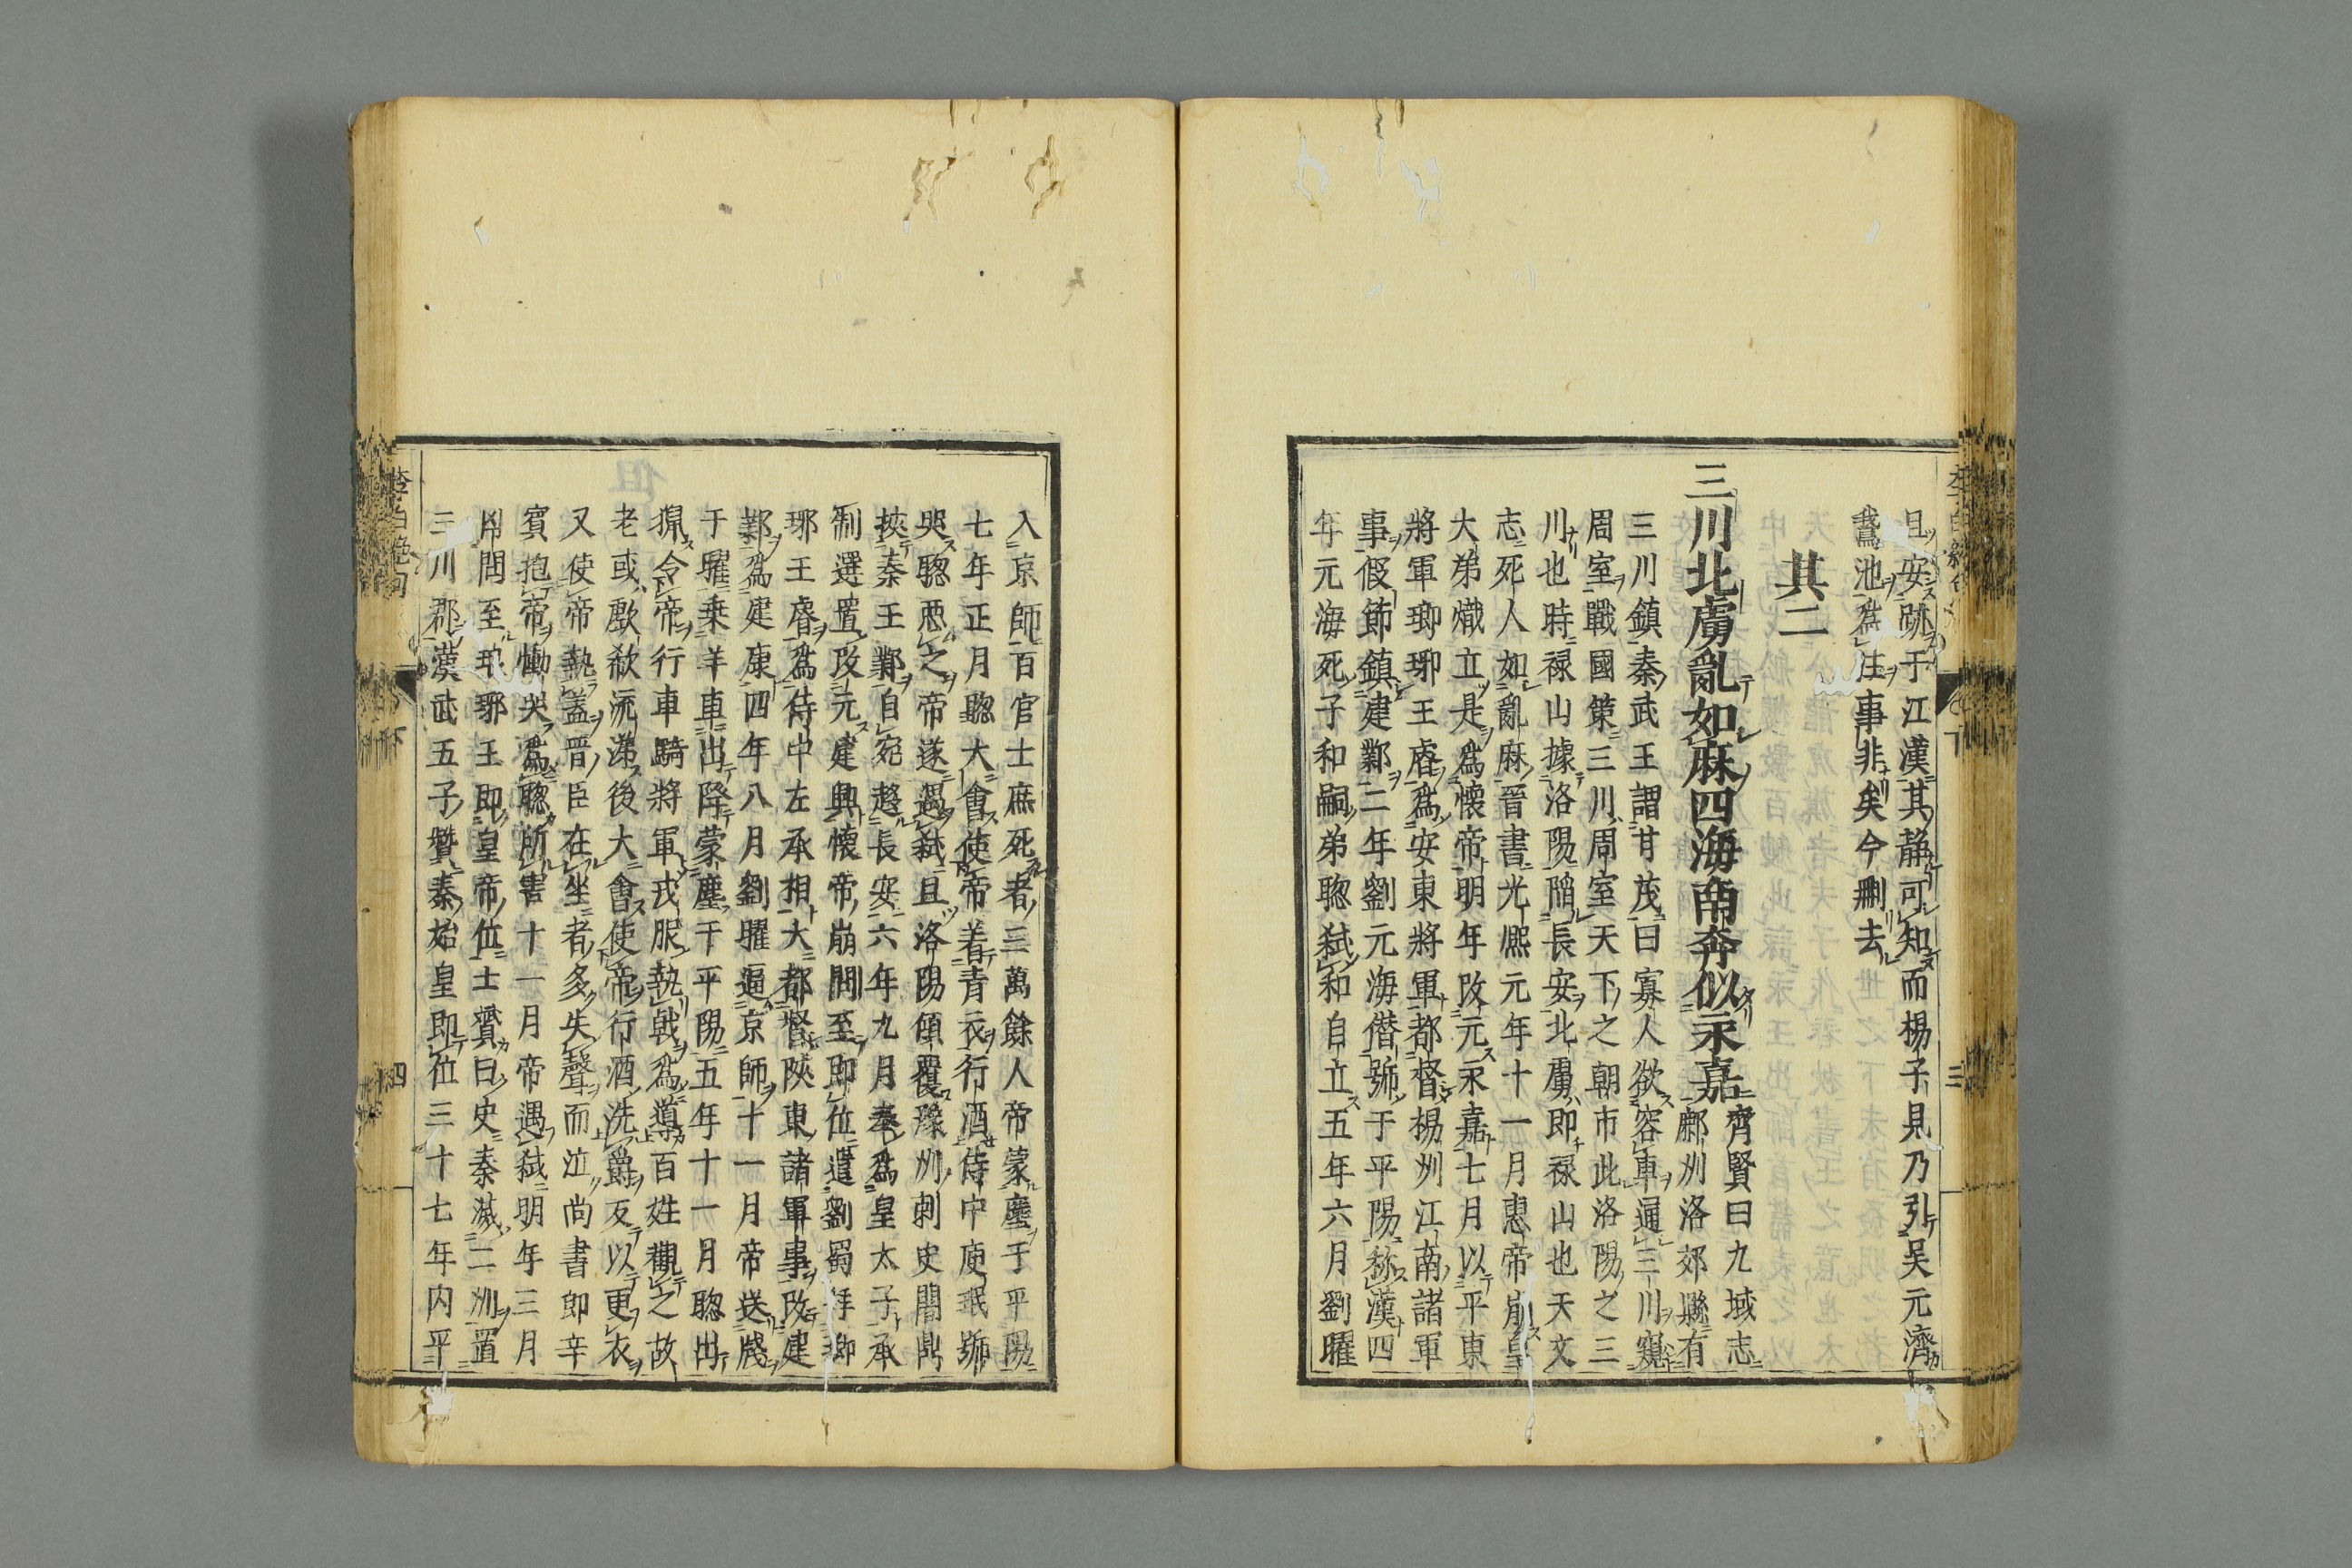 且安跡于江漢其静可知而楊子見乃引吴元濟
鵞池爲注事非矣今刪去
其二
三川北虜亂如麻四海南奔似永嘉
齊賢曰九域志
鄜洲洛郊縣有
三川鎮秦武王謂甘茂曰寡人欲容車通三川窺
周室戰國策三川周室天下之朝市此洛陽之三
川也時禄山據洛陽陷長安北虜即禄山也天文
志死人如亂麻晉書光熈元年十一月惠帝崩皇
大弟熾立是爲懐帝明年改元永嘉七月以平東
將軍瑯琊王睿爲安東將軍都督楊洲江南諸軍
事假節鎮建鄴二年劉元海僣號于平陽称漢四
年元海死子和嗣弟聦弑和自立五年六月劉曜
入京師百官士庶死者三萬餘人帝蒙塵于平陽
七年正月聦大會使帝着青衣行酒侍中庾珉號
哭聦惡之帝遂遇弑且洛陽傾覆豫洲刺史閻鼎
挾秦王鄴自宛趍長安六年九月奉爲皇太子承
制選置改元建興懐帝崩問至即位遣劉蜀拜瑯
琊王睿爲侍中左丞相大都督陜東諸軍事改建
鄴爲建康四年八月劉曜逼京師十一月帝送牋
于曜乗羊車出降蒙塵于平陽五年十一月聦出
獵令帝行車騎將軍戎服執戟爲導百姓觀之故
老或歔欷流涕後大會使帝行酒洗爵反以更衣
又使帝執蓋晋臣在坐者多失聲而泣尚書郎辛
賓抱帝慟哭爲聦所害十一月帝遇弑明年三月
凶問至琅琊王即皇帝位士贇曰史秦滅二洲置
三川郡漢武五子贊秦始皇即位三十七年内平
李白絶句
下
四
三